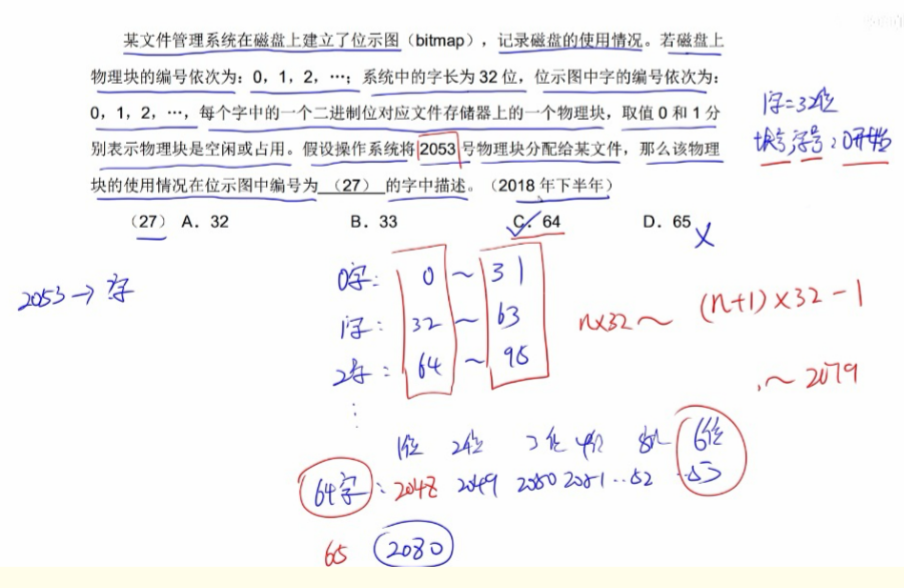 某文件管理系统在磁盘上建立了位示图（bitmap），记录磁盘的使用情况。若磁盘上
物理块的编号依次为：0，1，2，…；系统中的字长为 32 位，位示图中字的编号依次为：
0，1，2，…，每个字中的一个二进制位对应文件存储器上的一个物理块，取值 0 和 1 分
别表示物理块是空闲或占用。假设操作系统将 2053 号物理块分配给某文件，那么该物理
块的使用情况在位示图中编号为 （27） 的字中描述。（2018 年下半年）
1字=32位
块号,字号：0开始
（27） A．32 B．33 C．64 D．65
2053→字
0字： 0 ~ 31
1字： 32 ~ 63
2字： 64 ~ 95
n×32 ~ (n+1)×32-1
~ 2079
1位 2位 3位 4位 5位 6位
64字：2048 2049 2050 2051 ..52 ..53
65 2080